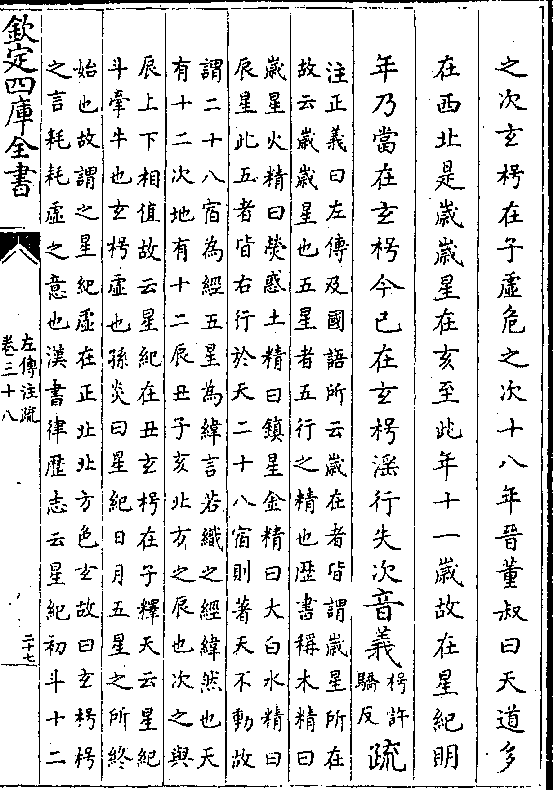 之次玄枵在子虛危之次十八年晉董叔曰天道多
在西北是歲歲星在亥至此年十一歲故在星紀明
年乃當在玄枵今已在玄枵淫行失次音義枵許
驕反疏
注正義曰左傳及國語所云歲在者皆謂歲星所在
故云歲歲星也五星者五行之精也歷書稱木精曰
歲星火精曰熒惑土精曰鎮星金精曰大白水精曰
辰星此五者皆右行於天二十八宿則著天不動故
謂二十八宿為經五星為緯言若織之經緯然也天
有十二次地有十二辰丑子亥北方之辰也次之與
辰上下相值故云星紀在丑玄枵在子釋天云星紀
斗牽牛也玄枵虛也孫炎曰星紀日月五星之所終
始也故謂之星紀虛在正北北方色玄故曰玄枵枵
之言耗耗虛之意也漢書律歷志云星紀初斗十二
欽定四庫全書
左傳注疏
卷三十八
二十七